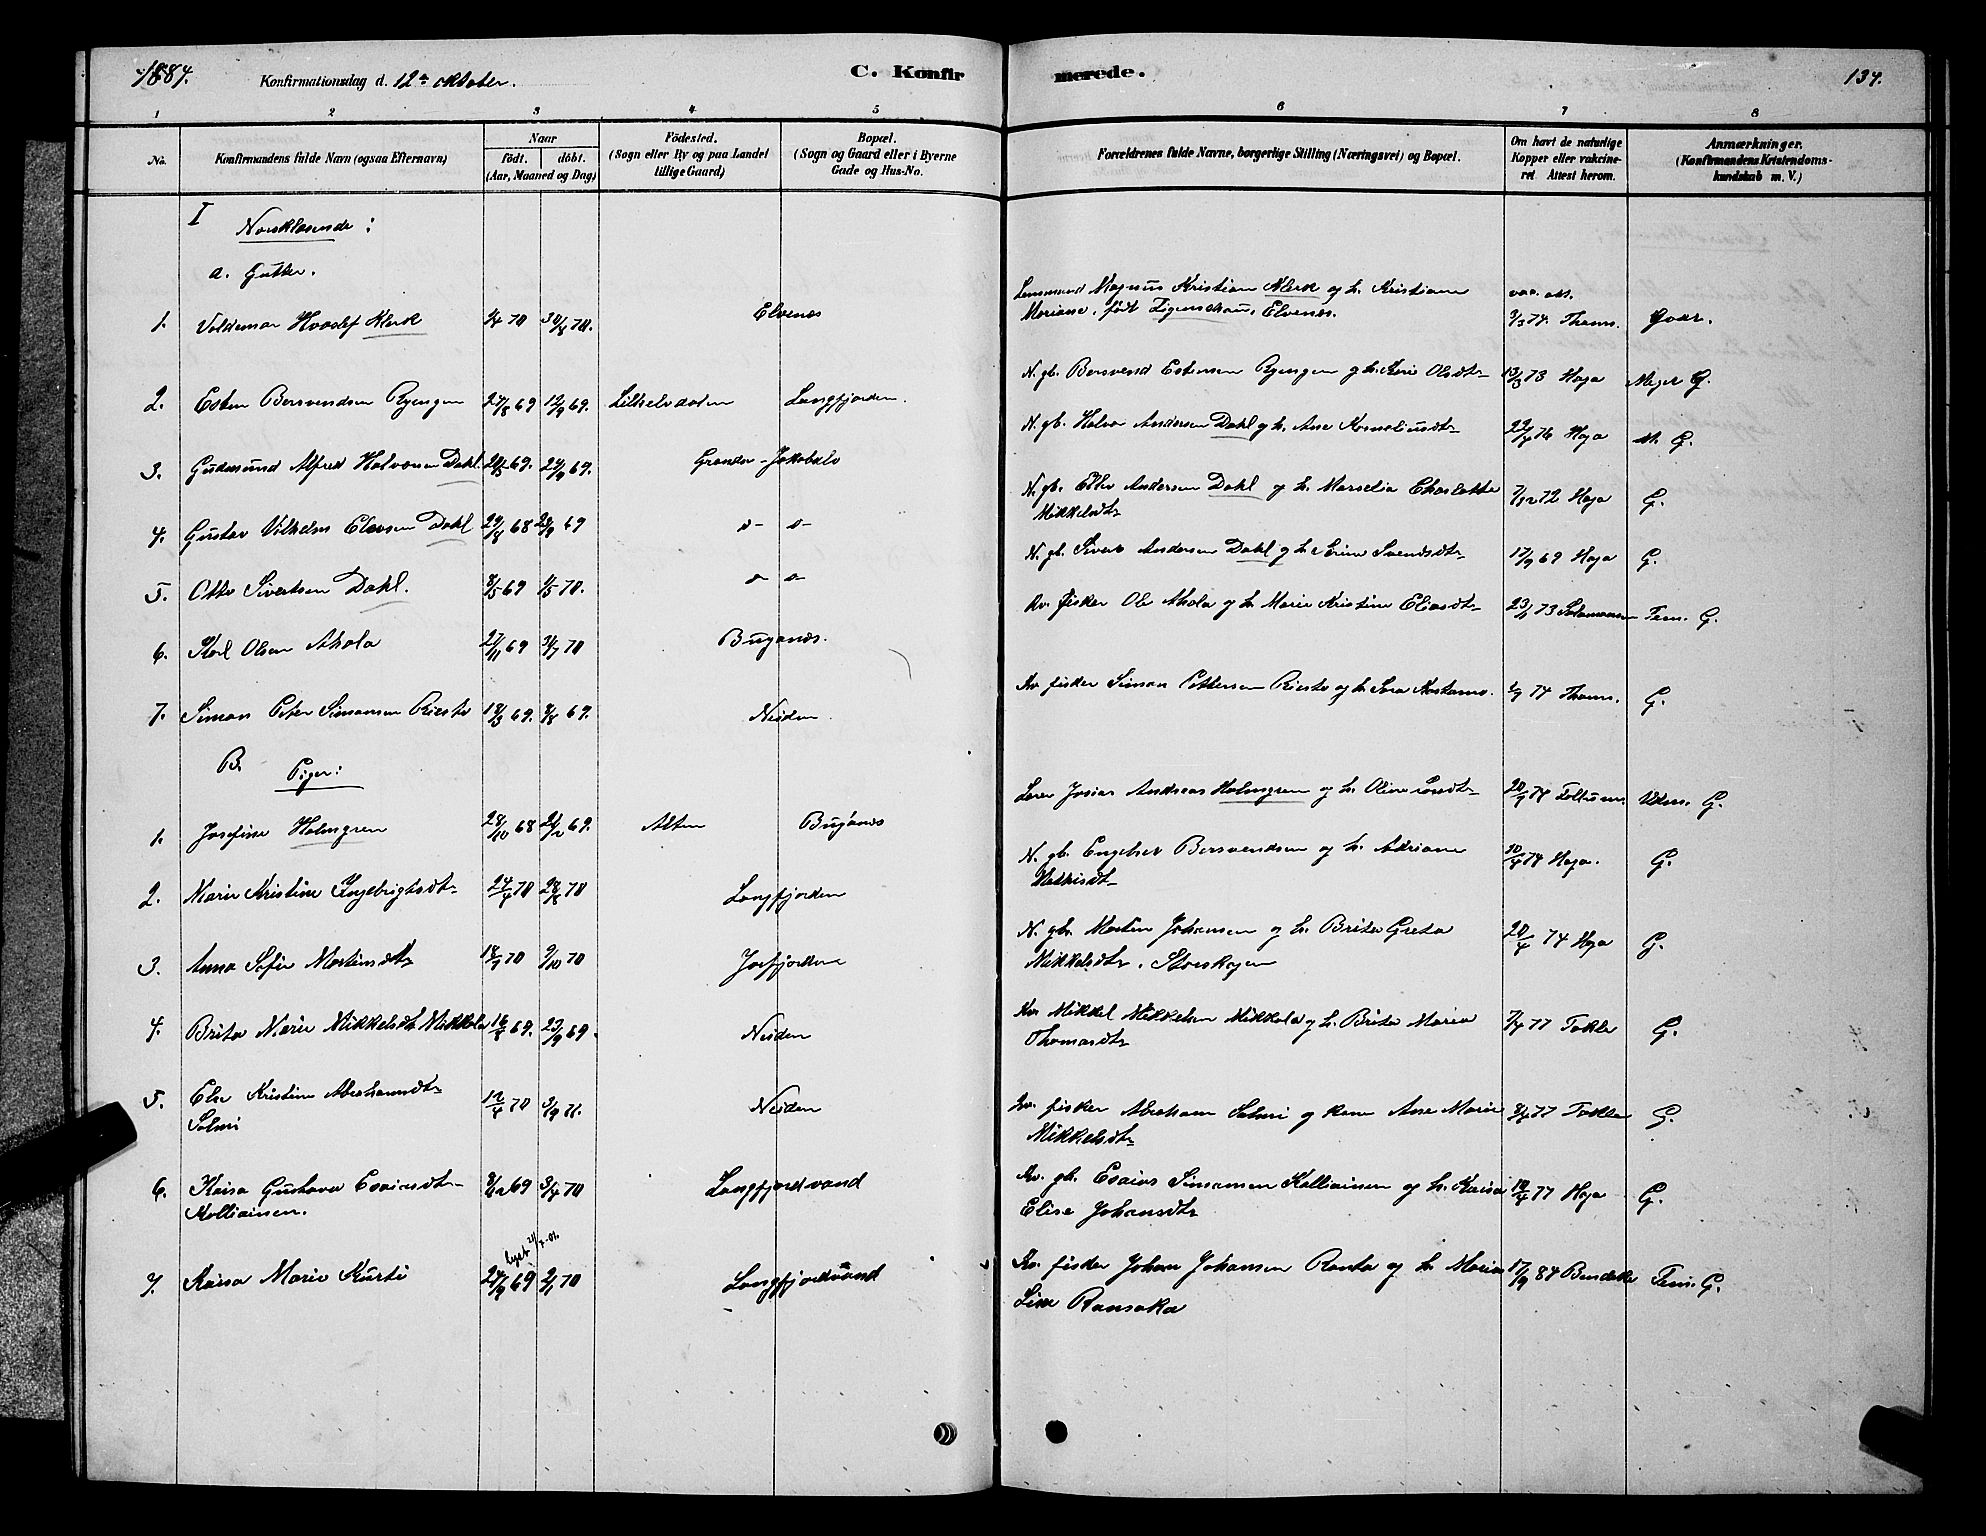 1884.
Konfirmationsdag d. 12te oktober.
C. Konfirmerede.
134.
1 2 3 4 5 6 7 8
No.
Konfirmandens fulde Navn (ogsaa Efternavn)
Naar
födt. döbt.
(Aar, Maaned og Dag)
Födested.
(Sogn eller By og paa Landet
tillige Gaard)
Bopæl.
(Sogn og Gaard eller i Byerne
Gade og Hus-No.
Forældrenes fulde Navne, borgerlige Stilling (Næringsvei) og Bopæl.
Om havt de naturlige
Kopper eller vakcine-
ret Attest herom.
Anmærkninger.
(Konfirmandens Kristendoms-
kundskab m. V.)
I
Norsklæsende :
a. Gutter.
1. Valdemar Klerk 70 70. Elvenes
Lensmand Magnus Kristian Klerk og h. Kristiane
Mariane, født Elvenes.
vac. att.
74. Thams.
2. Esten Bersvendsen Ryengen 24/8 69 12/9 69. Langfjorden.
N. gb. Bersvend Estensen Ryengen og h. Kari Olsdtr 73 Haga Meget G.
3. Gudmund Alfred Halvorsen Dahl. 69. 69. Jakobselv
N. gb. Halvor Andersen Dahl og h. Ane Korneliusdtr 22/4 76 Haga M. G.
4. Gustav Vilhelm Dahl 68 69 o- o-
N. gb. Andersen Dahl og h. Charlotte
Mikkelsdtr 72 Haga G.
5. Otto Sivertsen Dahl. 69 70. o- o-
N. gb. Sivert Andersen Dahl og h. Svendsdtr 17/9 69 Haga G.
6. Karl Olsen Ahola 27/11 69 70 Bugønes.
Kv. fisker Ole Ahola og h. Marie Kristine Eliasdtr 73 Tem. G.
7. Simon Peter Simonsen Riesto 69. 69. Neiden.
Kv. fisker Simon Pettersen Riesto og h. 74 Thams. G.
B. Piger:
1. Josefine Holmgren 28/10 68 69. Alten Bugønes
Lærer Josias Andreas Holmgren og h. 74 G.
2. Marie Kristine Ingebrigtsdtr 24/4 70 28/8 70 Langfjorden
N. gb. Engebret Bersvendsen og h. Adriane
Mathisdtr 10/4 74 Haga. G.
3. Anna Sofie Mortensdtr 70 9/10 70 Jarfjorden
N. gb. Morten Johansen og h. Brita Greta
Mikkelsdtr. Storskogen 20/4 74 Haga G.
4. Brita Marie Mikkelsdtr Mikkola 69. 23/9 69. Neiden
Kv. Mikkel Mikkelsen Mikkola og h. Brita Maria
Thomasdtr 77 Tokle G.
5. Else Kristine Abrahamsdtr
Salmi 12/4 70 3/9 71. Neiden
Kv. fisker Abraham Salmi og kone Ane Marie
Mikkelsdtr 77 Tokle G.
6. Kaisa Gustava Esaiasdtr
Kolliainen. 69 3/4 70 Langfjordvand
Kv. gb. Esaias Simonsen Kolliainen og h. Kaisa
Elise Johansdtr 77 Haga G.
7. Kaisa Marie Kurti 69 2/1 70 Langfjordvand
Kv. fisker Johan Johansen Ranta og h. Maria
Lise Ransaka 17/9 84 Tem. G.